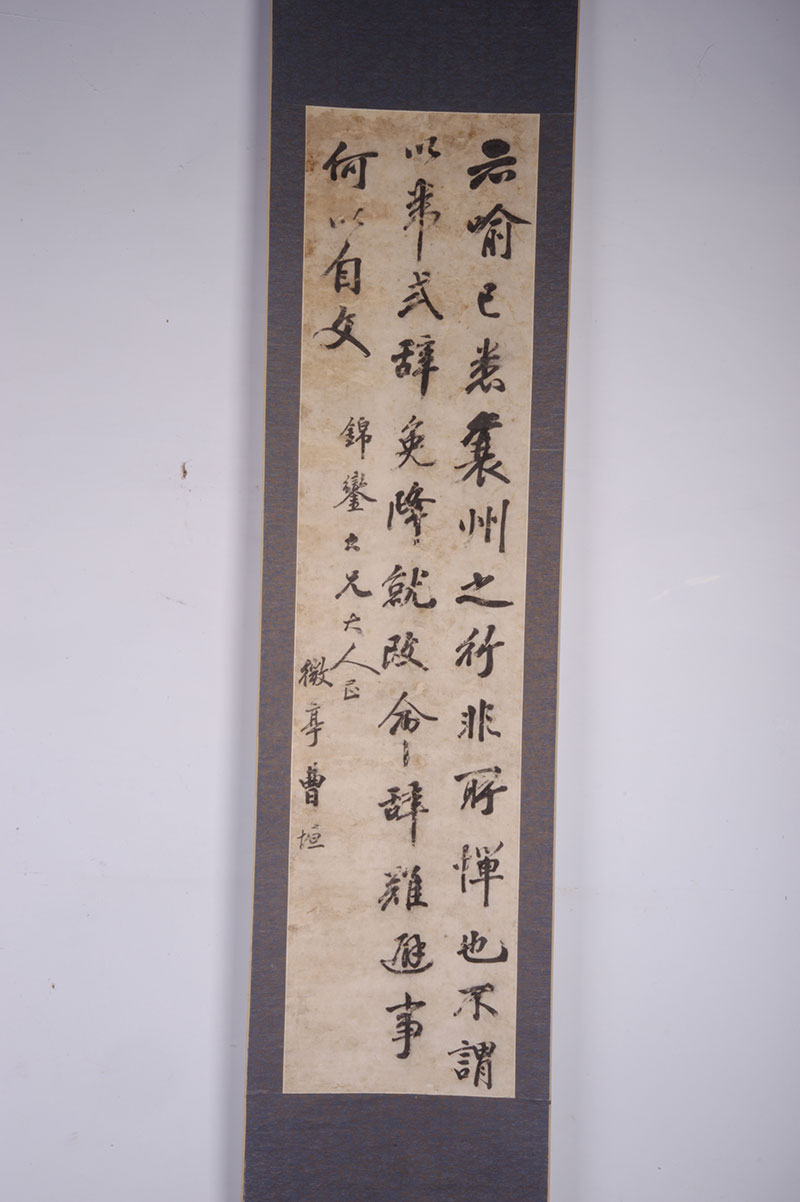 示喻已悉襄州之行非所憚也不謂
以弟式辭免降就改命辞難避事
何以自文
錦鑾兄大人正
微亭曹垣